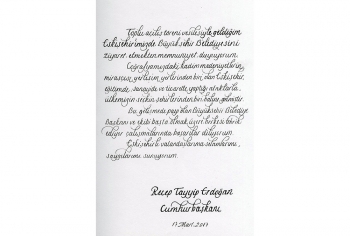 Toplu açılış töreni vesilesiyle geldiğim
Eskişehir'imizde Büyükşehir Belediyesini
ziyaret etmekten memnuniyet duyuyorum.
Coğrafyamızdaki kadim medeniyetlerin
mirasçısı, yerleşim yerlerinden biri olan Eskişehir,
eğitimde, sanayide ve ticarette yaptığı ataklarla,
ülkemizin seçkin şehirlerinden biri haline gelmiştir.
Bu gelişmede payı olan Büyükşehir Belediye
Başkanı ve ekibi başta olmak üzere herkesi tebrik
ediyor çalışmalarında başarılar diliyorum.
Eskişehirli vatandaşlarıma selamlarımı,
saygılarımı sunuyorum.
Recep Tayyip Erdoğan
Cumhurbaşkanı
17 Mart 2017